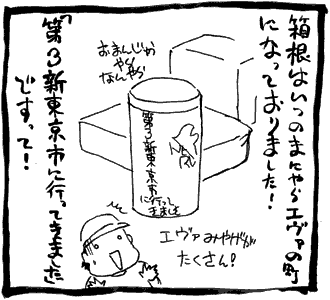 箱根はいつのまにやらエヴァの町
になっておりました!
おまんじゅう
やら
なんやら
第3新東京市
に行って
きました
エヴァみやげが
たくさん!
「第3新東京市に行ってきました」
ですって!